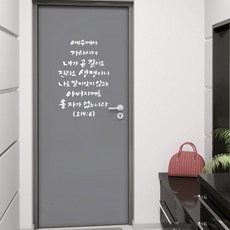 예수께서
가라사대
내가 곧 길이요
진리요 생명이니
나로 말미암지 않고는
아버지께로
올 자가 없느니라
(요14:6)